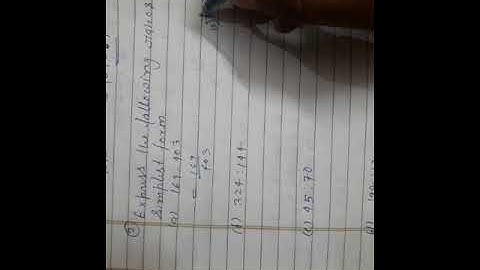 ② Express the following ratios
simplest form
(a) 169:403
= 169/403
(b) 324:144
(c) 45:70